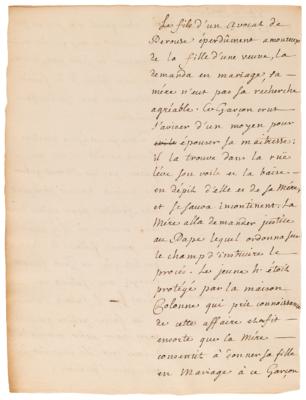 Le fils d'un avocat de
Perouse éperdûment amoureux
de la fille d'une veuve, la
demanda en mariage, sa
mère n'eut pas sa recherche
agréable. Ce Garçon crut
s'aviser d'un moyen pour
épouser sa maitresse:
il la trouve dans la rüe
léve son voile et la baise
en dépit d'elle et de sa Mére,
et se sauva incontinent. La
Mére alla demander justice
au Pape lequel ordonna sur
le champ d'instruire le
procès. Le jeune h. étoit
protégé par la maison
Colonne qui prit connoissance
de cette affaire et fit
ensorte que la Mére
consentit à donner sa fille
en Mariage à ce Garçon